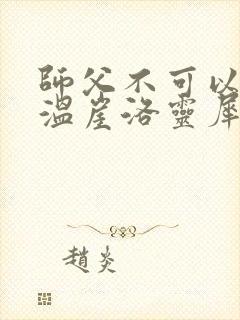 師父不可以
溫崖洛靈犀
趙炎